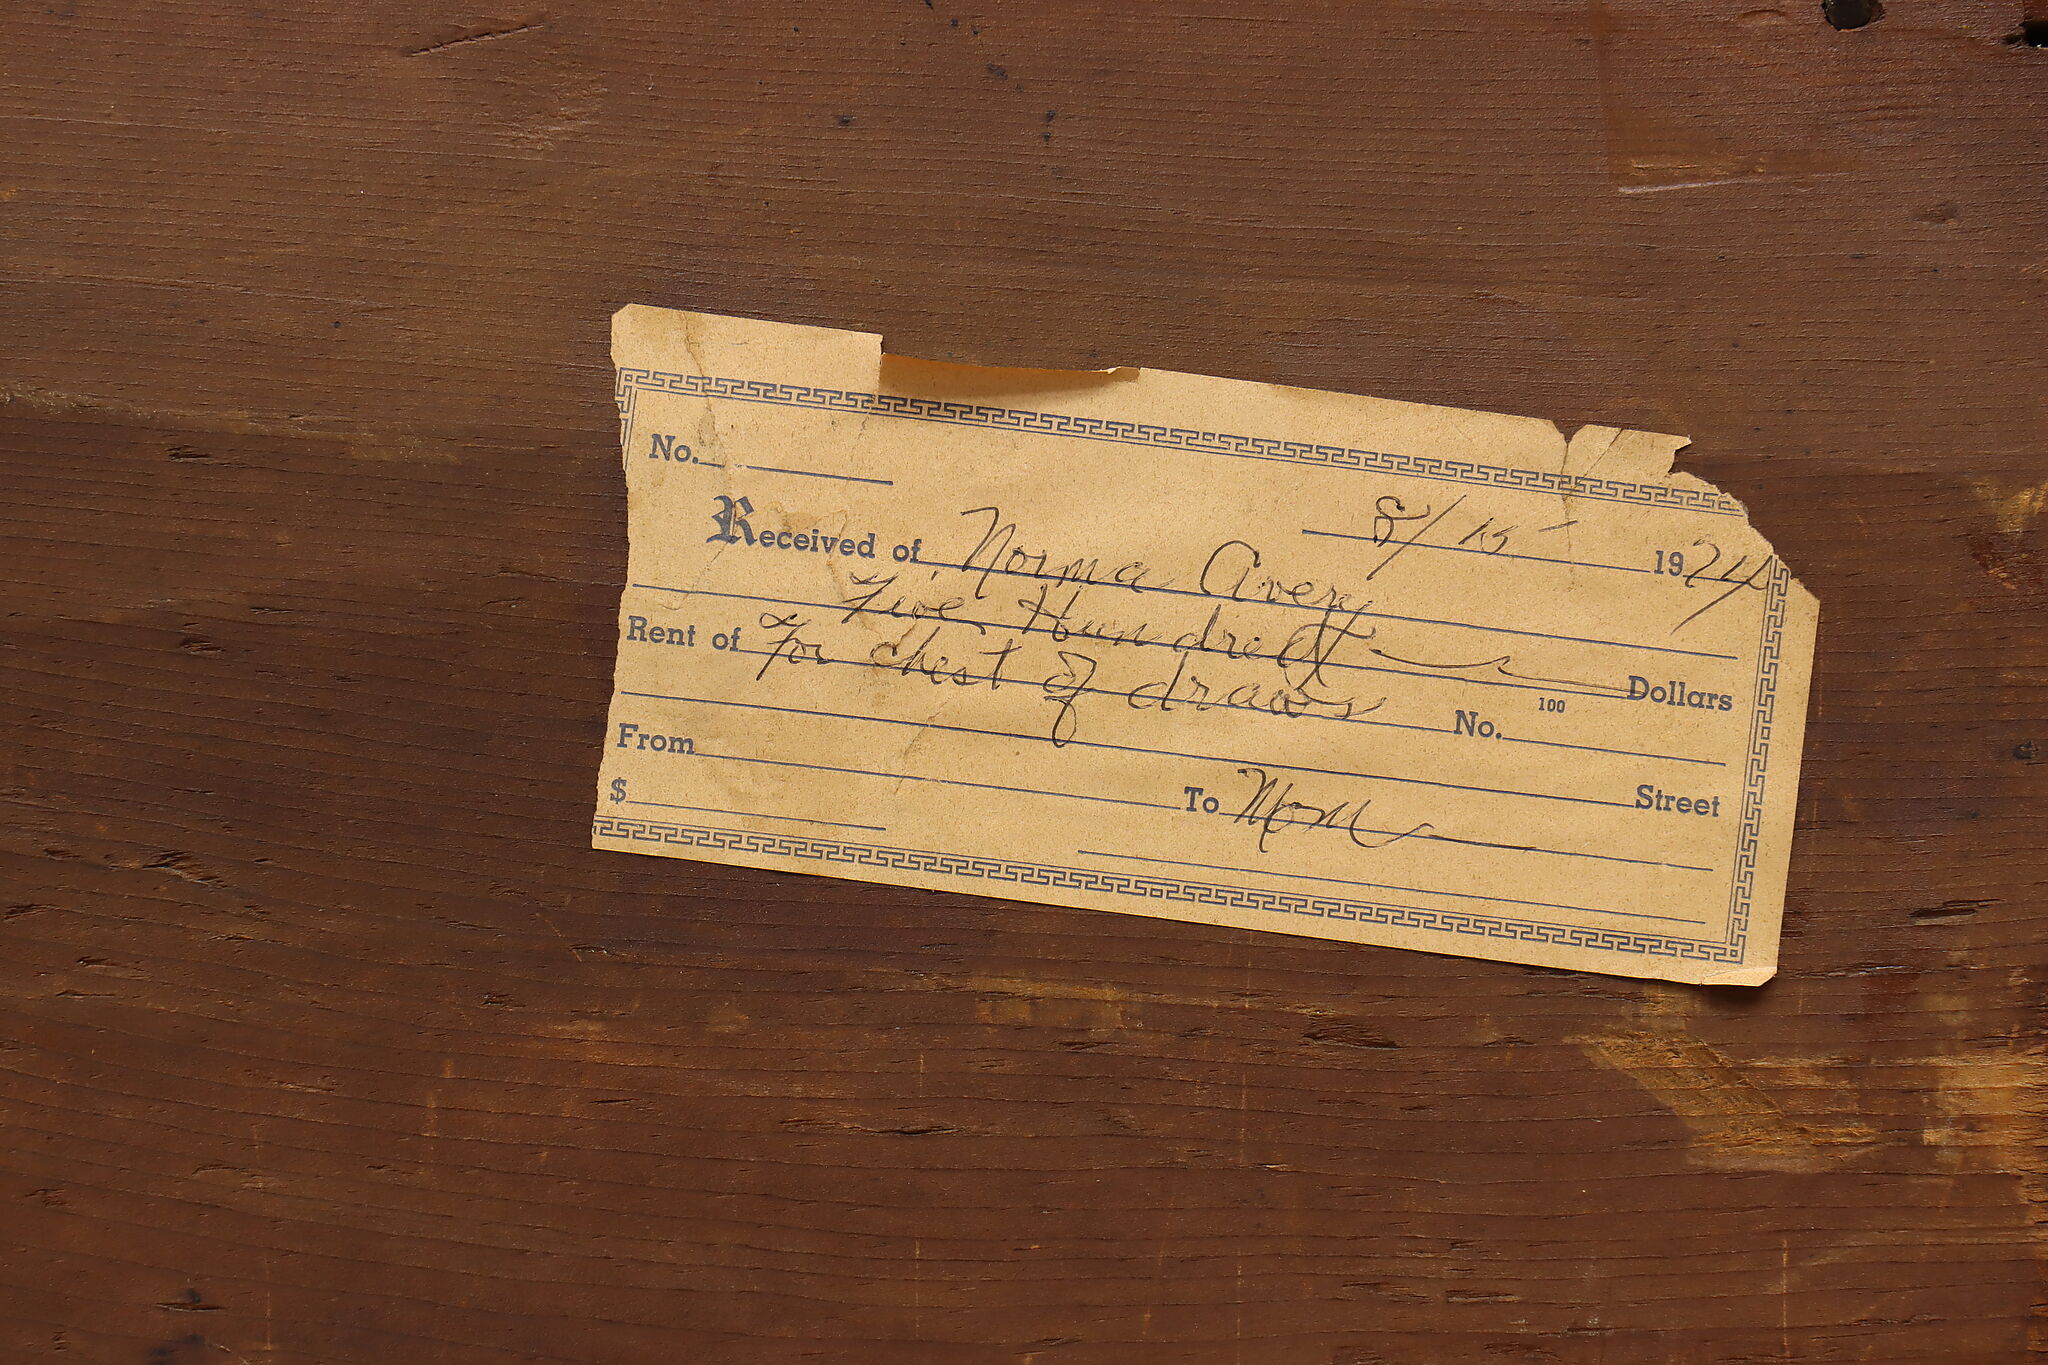 No.
8/15 1974
Received of Norma Avery
Five Hundred Dollars
100
Rent of For chest of draws No.
Street
From To Mom
$